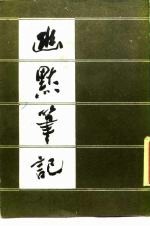 幽默筆記